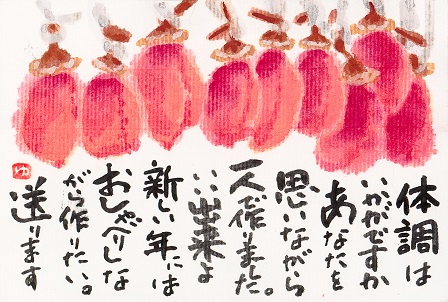 体調は
いかがですか
あなたを
思いながら
一人で作りました。
いい出来よ
新しい年には
おしゃべりしな
がら作りたい。
送ります
ゆ